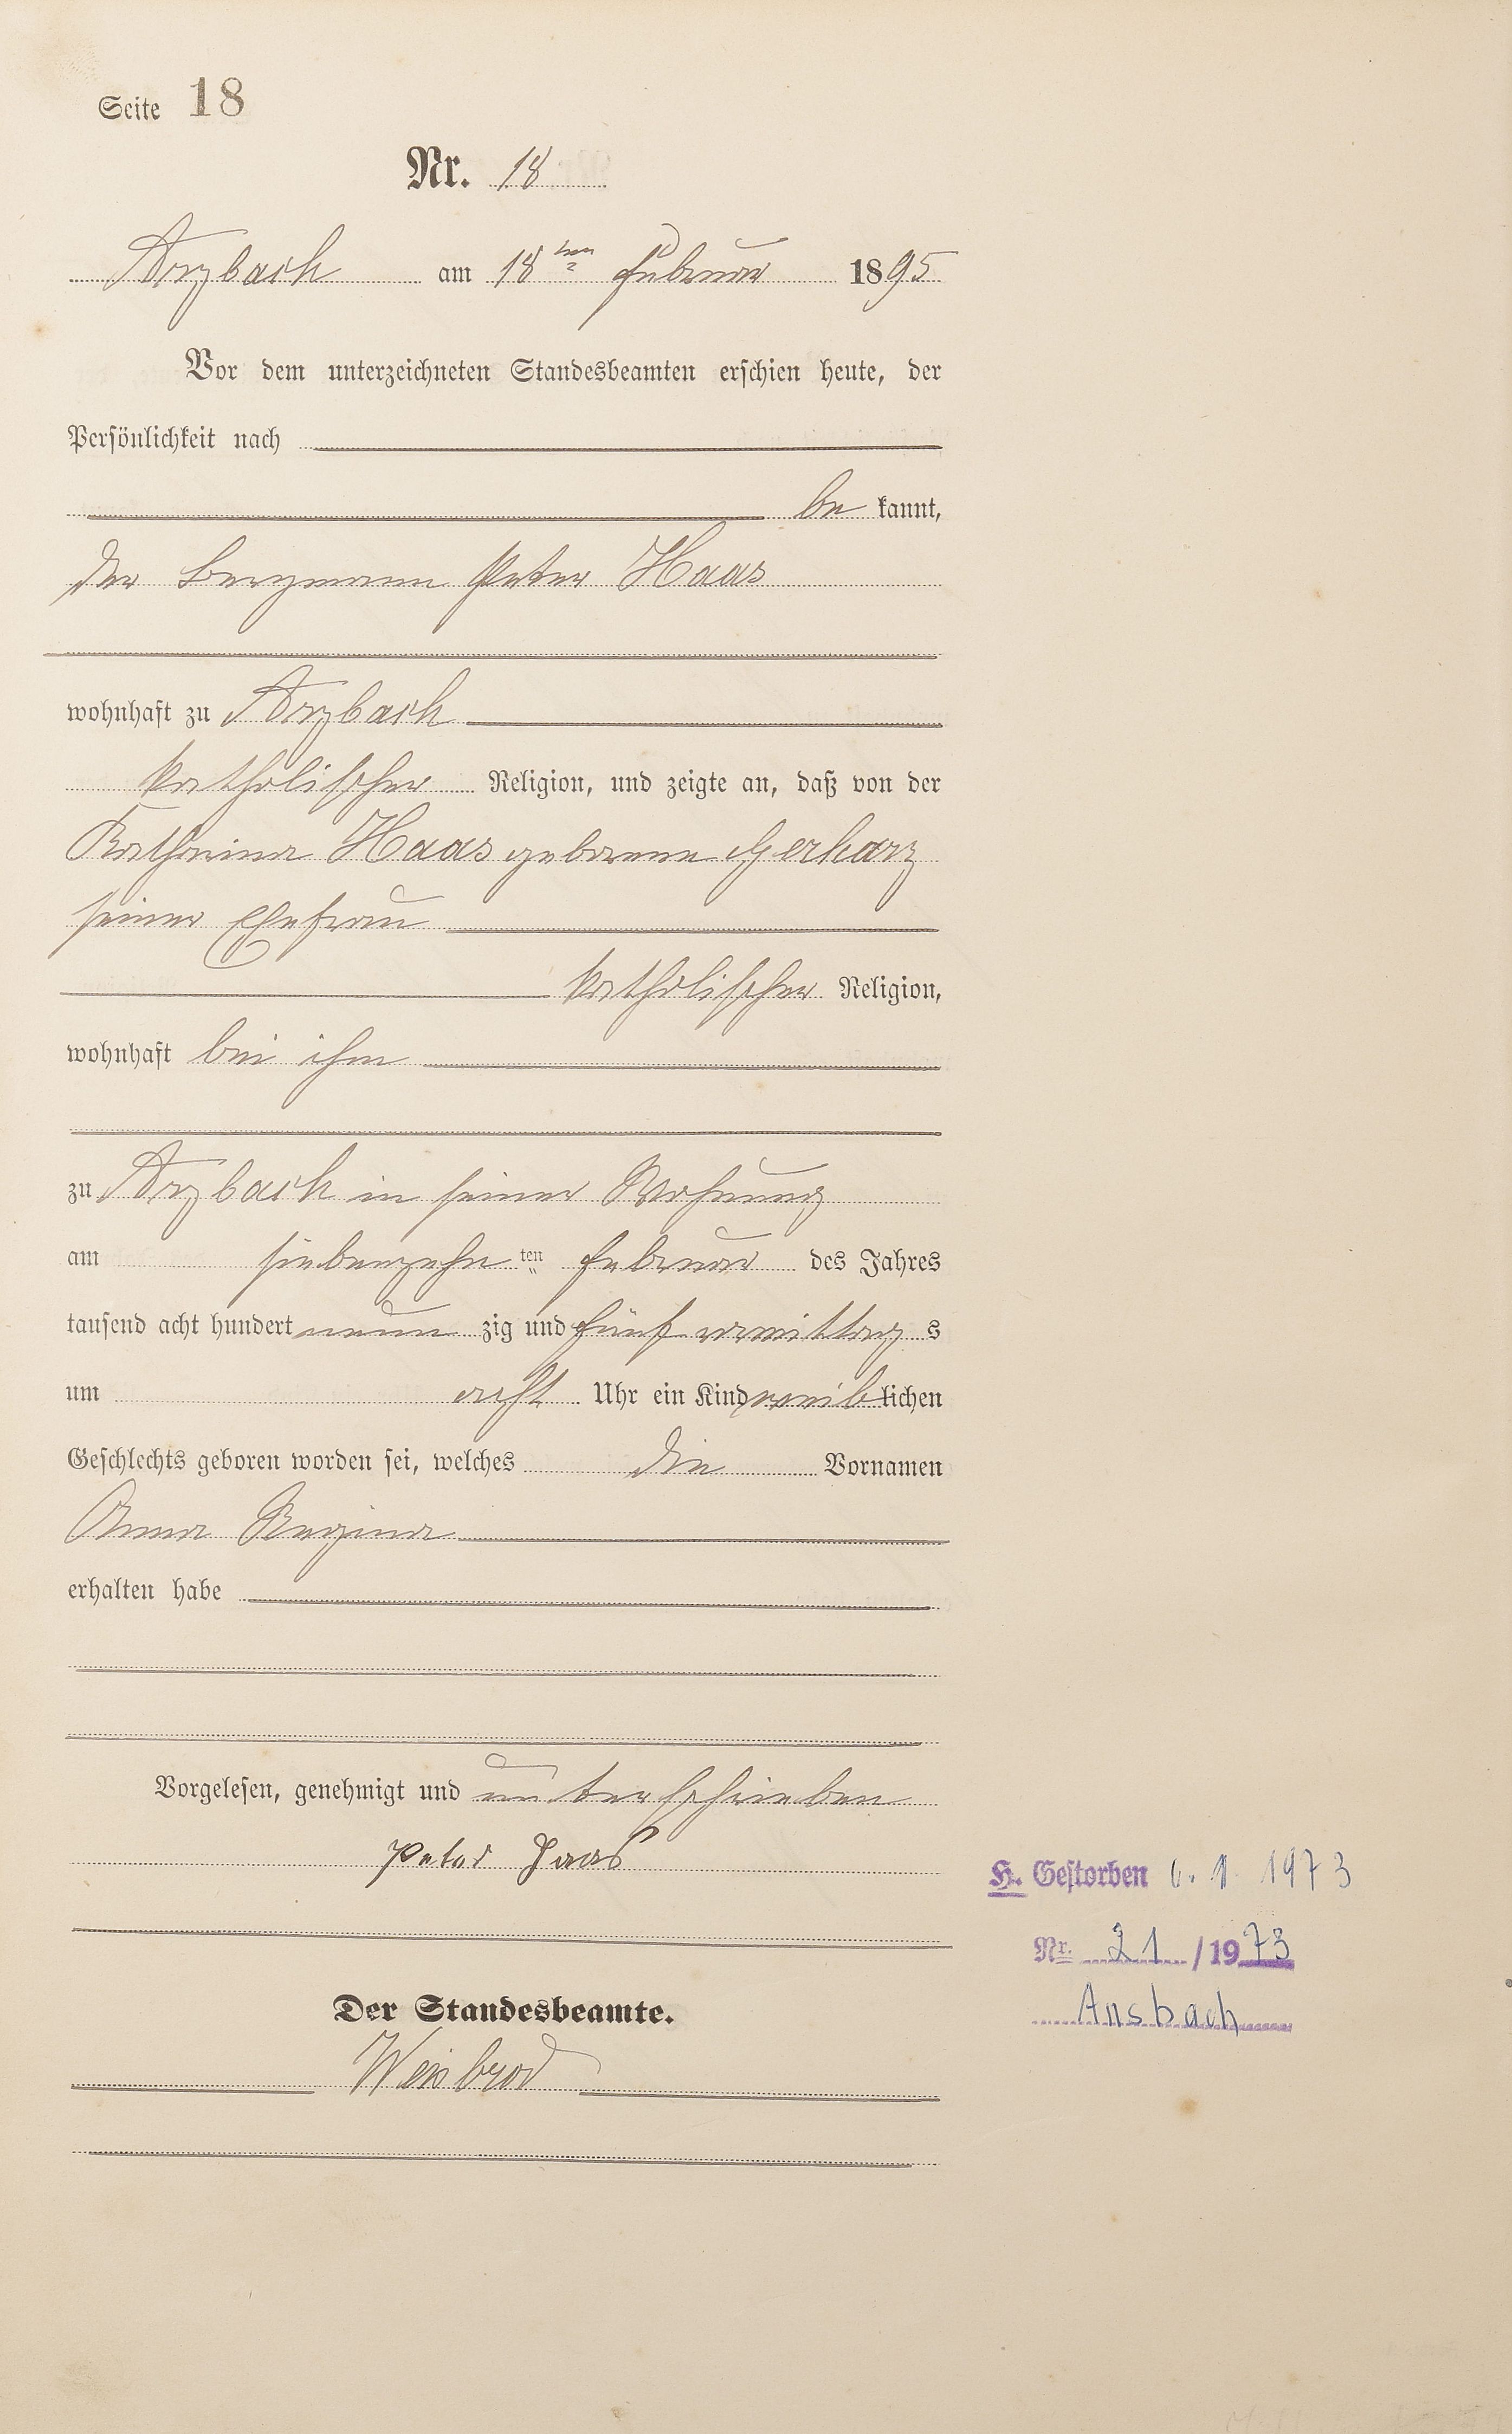 Seite 18
Nr. 18
Arzbach am 18ten Februar 1895
Vor dem unterzeichneten Standesbeamten erschien heute, der
Persönlichkeit nach
be kannt,
der Bergmann Peter Haas
wohnhaft zu Arzbach
katholischer Religion, und zeigte an, daß von der
Katharina Haas geborene Gerharz
seiner Ehefrau
katholischer Religion,
wohnhaft bei ihm
zu Arzbach in seiner Wohnung
am siebenzehn ten Februar des Jahres
tausend acht hundert neun zig und fünf vormittag s
um acht Uhr ein Kind weiblichen
Geschlechts geboren worden sei, welches die Vornamen
Anna Regina
erhalten habe
Vorgelesen, genehmigt und unterschrieben
Peter Haas
Der Standesbeamte.
Weisbrod
H. Gestorben 6. 1. 1973
Nr. 21 / 1973
Ansbach